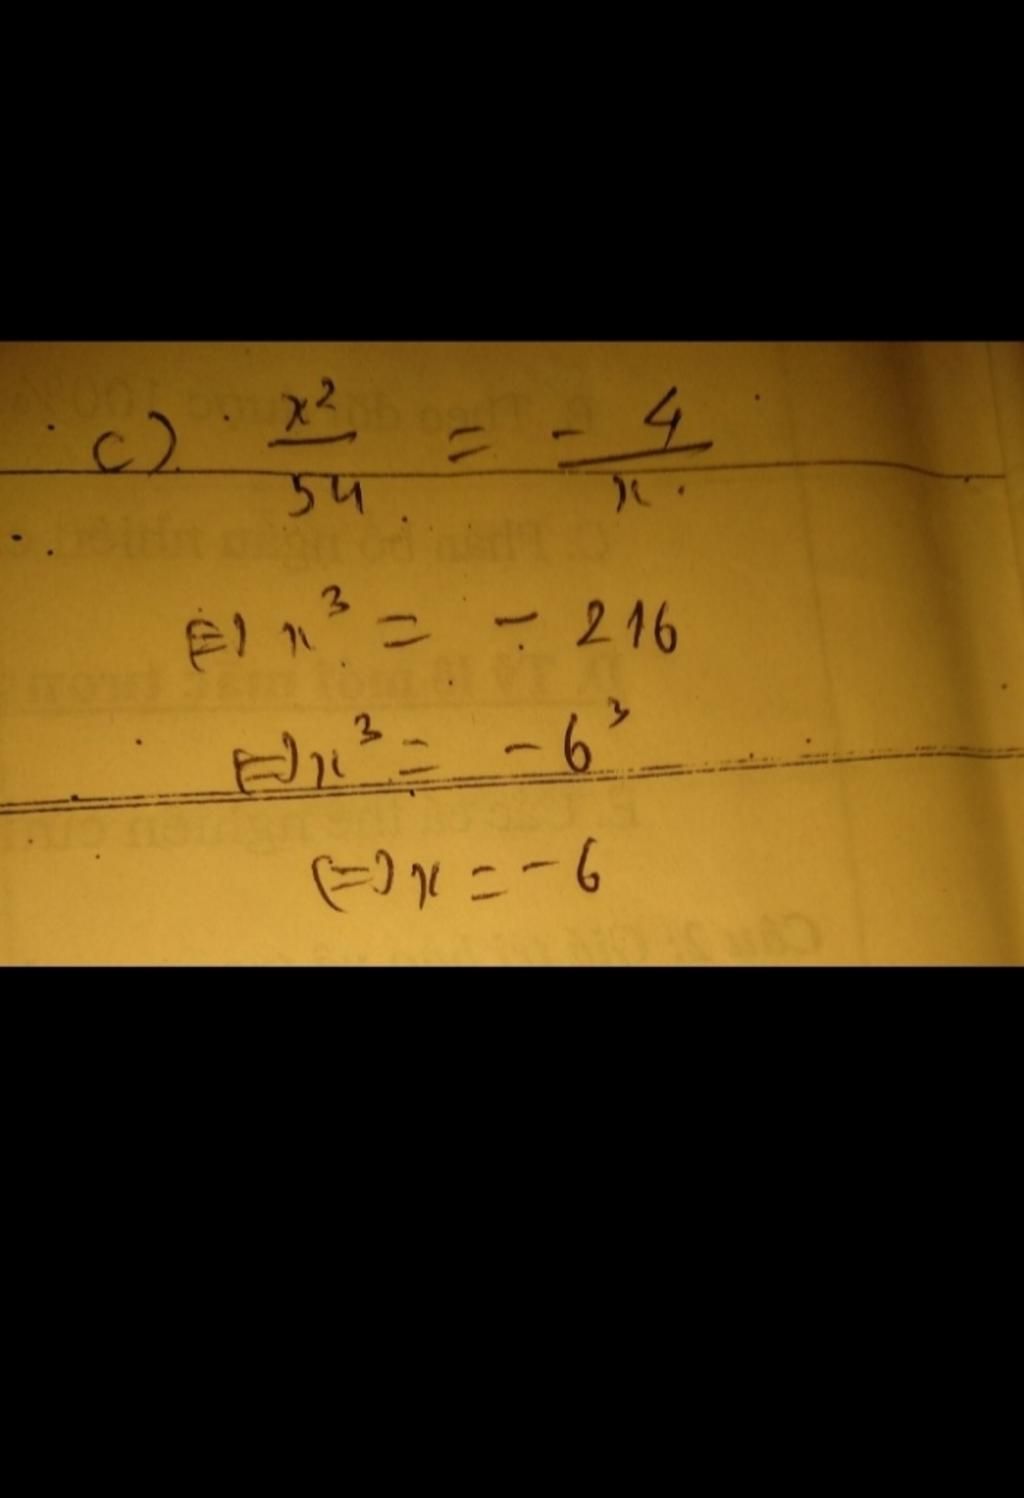 c) x²/54 = -4/x
⇔ x³ = - 216
⇔ x³ = - 6³
⇔ x = - 6